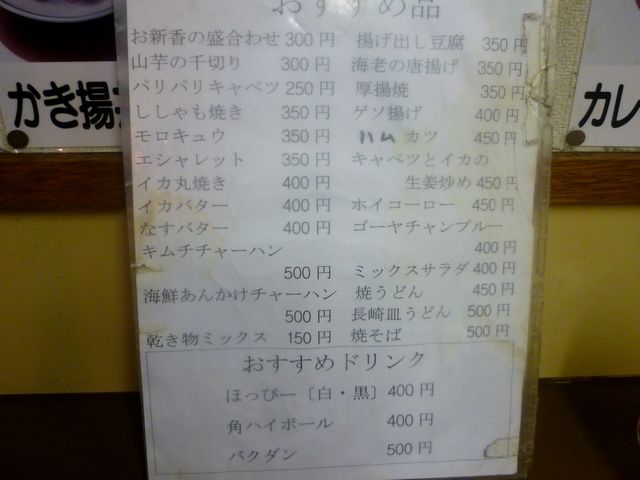 おすすめ品
お新香の盛合わせ 300 円
山芋の千切り 300 円
パリパリキャベツ 250 円
ししゃも焼き 350 円
モロキュウ 350 円
エシャレット 350 円
イカ丸焼き 400 円
イカバター 400 円
なすバター 400 円
キムチチャーハン
500 円
海鮮あんかけチャーハン
500 円
乾き物ミックス 150 円
揚げ出し豆腐 350 円
海老の唐揚げ 350 円
厚揚焼 350 円
ゲソ揚げ 400 円
ハムカツ 450 円
キャベツとイカの
生姜炒め 450 円
ホイコーロー 450 円
ゴーヤチャンプルー
400 円
ミックスサラダ 400 円
焼うどん 450 円
長崎皿うどん 500 円
焼そば 500 円
おすすめドリンク
ほっぴー〔白・黒〕 400 円
角ハイボール 400 円
バクダン 500 円
かき揚
カレ